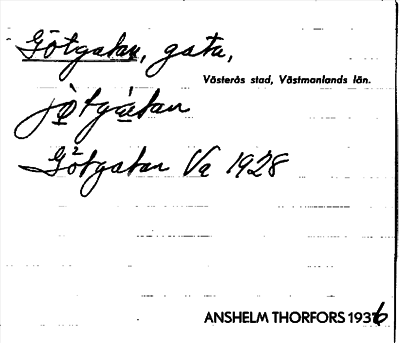 Götgatan, gata,
Västerås stad, Västmanlands län.
jö̀tgà̱tan
Götgatan Va 1928
ANSHELM THORFORS 1936